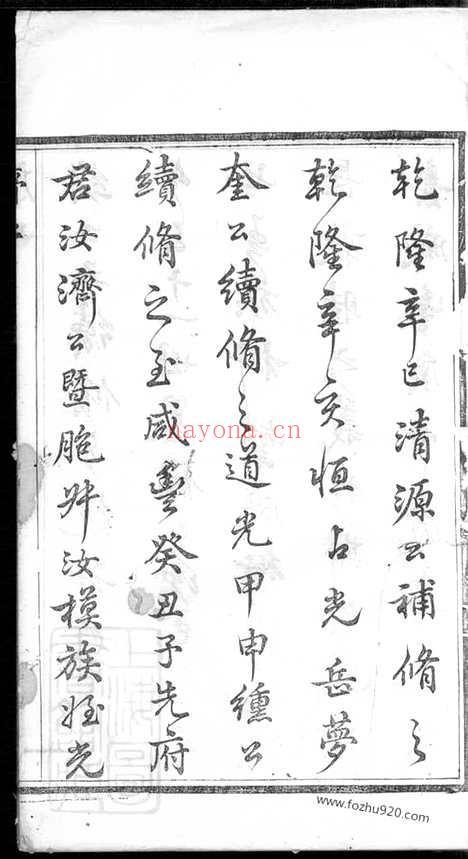 乾隆辛巳清源公補脩之
乾隆辛亥恒占光岳夢
奎公續脩之道光甲申纁公
續脩之至咸豐癸丑予先府
君汝濟公暨胞叔汝模族姪光
nayona.cn
www.fozhu920.com